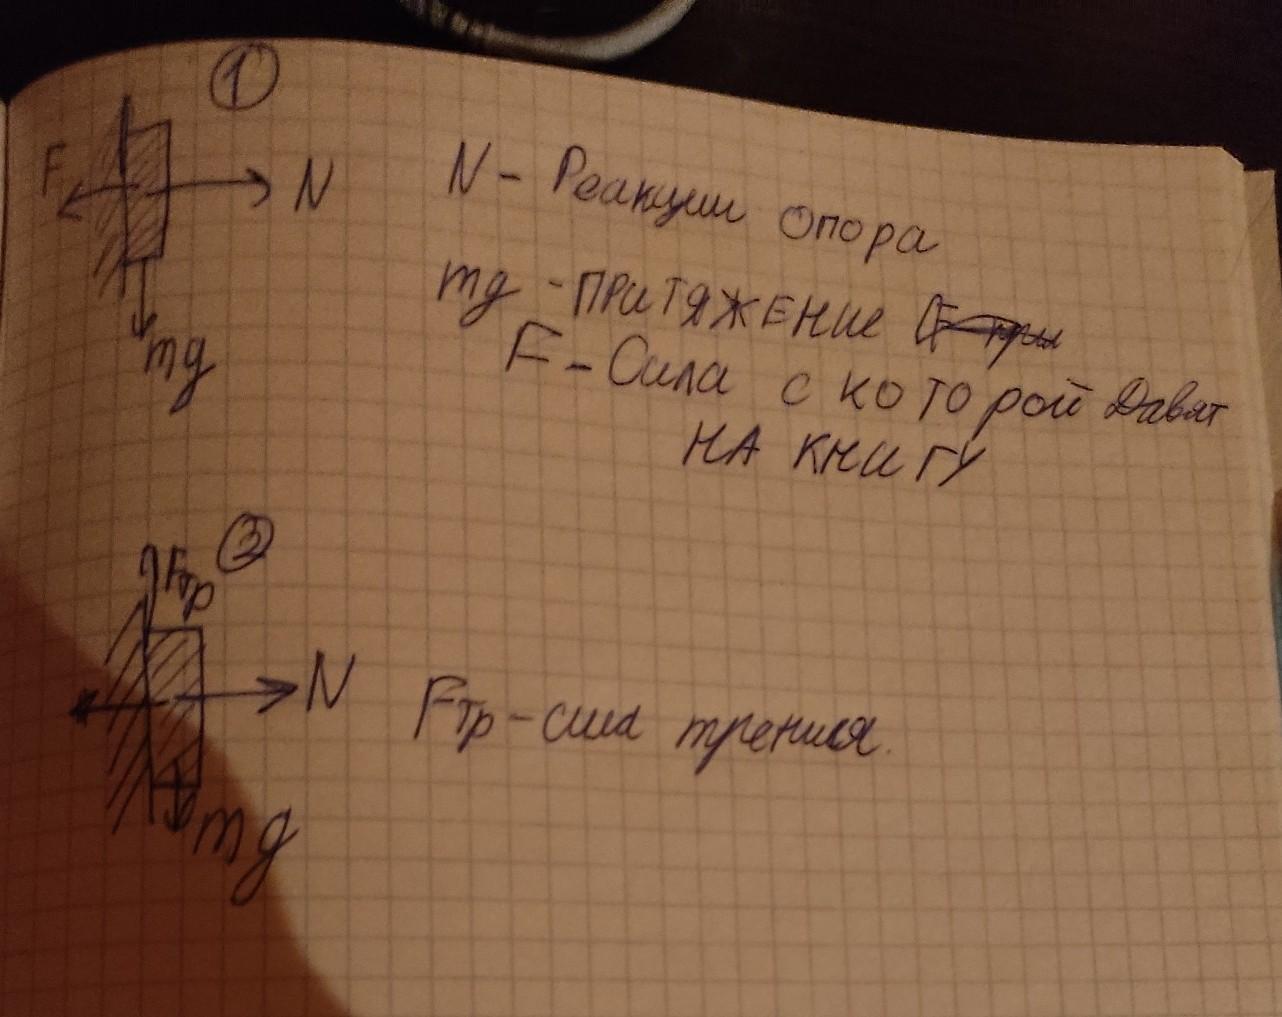 1
F
N
mg
N - Реакции опора
mg - ПРИТЯЖЕНИЕ
F - Сила с которой Давят
НА КНИГУ
2
Fтр
N
mg
Fтр - сила трения.